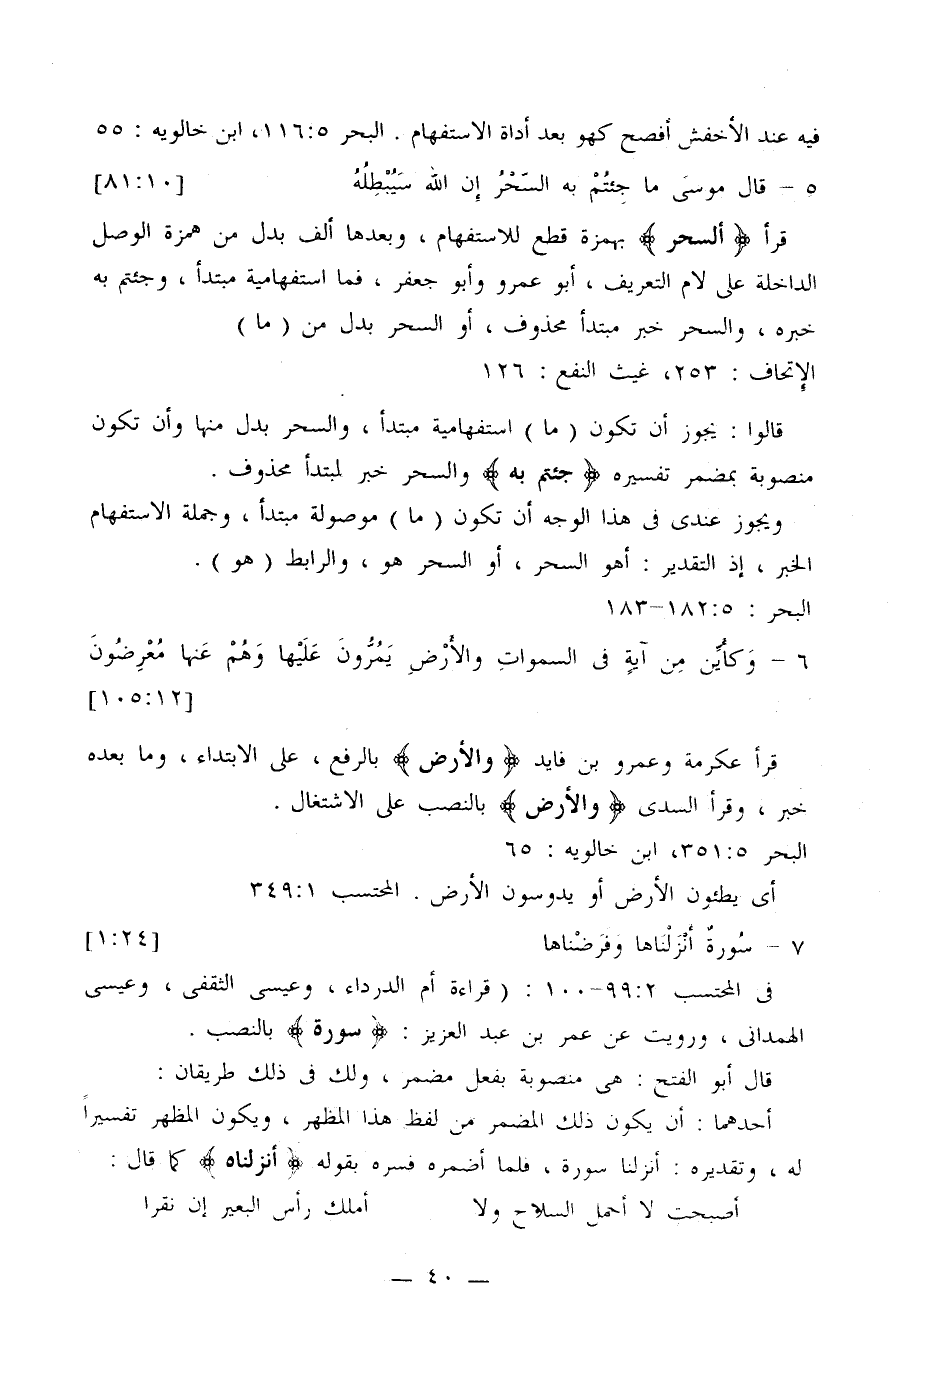 فيه عند الأخفش أفصح كهو بعد أداة الاستفهام . البحر ١١٦:٥، ابن خالويه : ٥٥
٥ – قال موسَى ما جِئتُمْ به السِّحْرُ إِن الله سَيُبْطِلُهُ [٨١:١٠]
قرأ ﴿ ألسحر ﴾ بهمزة قطع للاستفهام ، وبعدها ألف بدل من همزة الوصل
الداخلة على لام التعريف ، أبو عمرو وأبو جعفر ، فما استفهامية مبتدأ ، وجئتم به
خبره ، والسحر خبر مبتدأ محذوف ، أو السحر بدل من ( ما )
الإِتحاف : ٢٥٣، غيث النفع : ١٢٦
قالوا : يجوز أن تكون ( ما ) استفهامية مبتدأ ، والسحر بدل منها وأن تكون
منصوبة بمضمر تفسيره ﴿ جئتم به ﴾ والسحر خبر لمبتدأ محذوف .
ويجوز عندى فى هذا الوجه أن تكون ( ما ) موصولة مبتدأ ، وجملة الاستفهام
الخبر ، إذ التقدير : أهو السحر ، أو السحر هو ، والرابط ( هو ) .
البحر : ١٨٢:٥–١٨٣
٦ – وَكأَيِّن مِن آيةٍ فى السمواتِ والأَرْضِ يَمُرُّونَ عَلَيْها وَهُمْ عَنها مُعْرِضُونَ
[١٠٥:١٢]
قرأ عكرمة وعمرو بن فايد ﴿ والأرض ﴾ بالرفع ، على الابتداء ، وما بعده
خبر ، وقرأ السدى ﴿ والأرض ﴾ بالنصب على الاشتغال .
البحر ٣٥١:٥، ابن خالويه : ٦٥
أى يطئون الأرض أو يدوسون الأرض . المحتسب ٣٤٩:١
٧ – سُورةٌ أَنْزَلْنَاها وفَرَضْناها [١:٢٤]
فى المحتسب ٩٩:٢–١٠٠ : ( قراءة أم الدرداء ، وعيسى الثقفى ، وعيسى
الهمدانى ، ورويت عن عمر بن عبد العزيز : ﴿ سورة ﴾ بالنصب .
قال أبو الفتح : هى منصوبة بفعل مضمر ، ولك فى ذلك طريقان :
أحدهما : أن يكون ذلك المضمر من لفظ هذا المظهر ، ويكون المظهر تفسيراً
له ، وتقديره : أنزلنا سورة ، فلما أضمره فسره بقوله ﴿ أنزلناه ﴾ كما قال :
أصبحت لا أحمل السلاح ولا أملك رأس البعير إن نفرا
— ٤٠ —